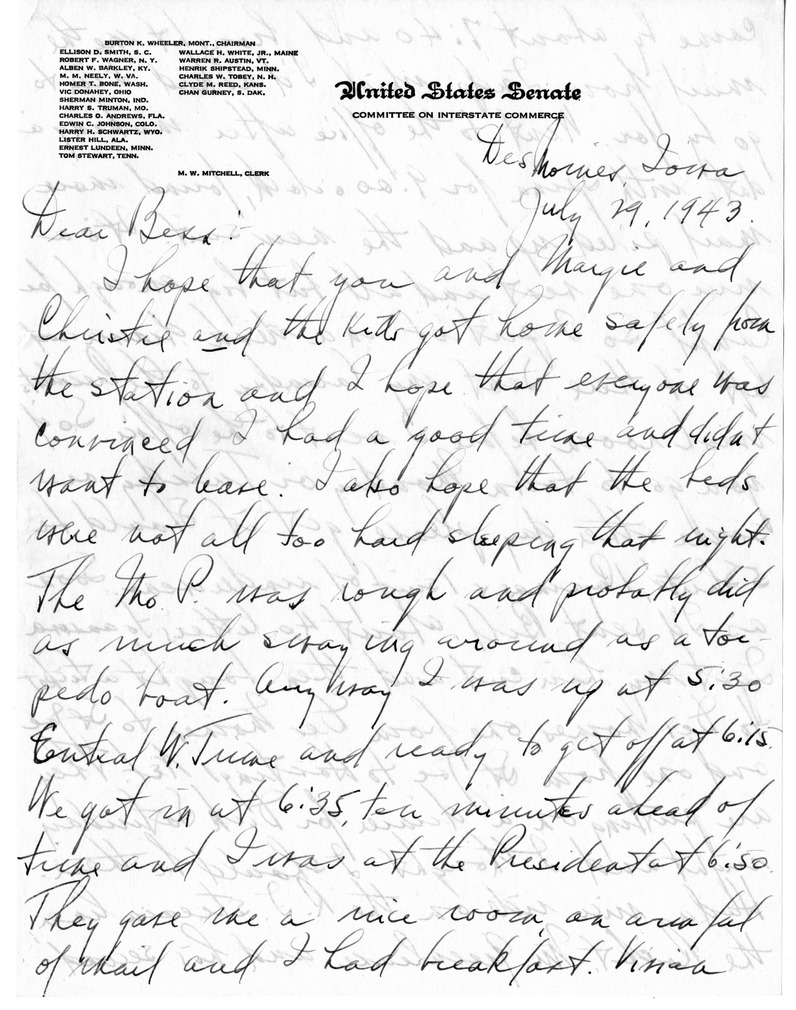 BURTON K. WHEELER, MONT., CHAIRMAN
ELLISON D. SMITH, S. C.
ROBERT F. WAGNER, N. Y.
ALBEN W. BARKLEY, KY.
M. M. NEELY, W. VA.
HOMER T. BONE, WASH.
VIC DONAHEY, OHIO
SHERMAN MINTON, IND.
HARRY S. TRUMAN, MO.
CHARLES O. ANDREWS, FLA.
EDWIN C. JOHNSON, COLO.
HARRY H. SCHWARTZ, WYO.
LISTER HILL, ALA.
ERNEST LUNDEEN, MINN.
TOM STEWART, TENN.
WALLACE H. WHITE, JR., MAINE
WARREN R. AUSTIN, VT.
HENRIK SHIPSTEAD, MINN.
CHARLES W. TOBEY, N. H.
CLYDE M. REED, KANS.
CHAN GURNEY, S. DAK.
M. W. MITCHELL, CLERK
United States Senate
COMMITTEE ON INTERSTATE COMMERCE
Des Moines, Iowa
July 29, 1943.
Dear Bess:-
I hope that you and Margie and
Christie and the kids got home safely from
the station and I hope that everyone was
convinced I had a good time and didn't
want to leave. I also hope that the beds
were not all too hard sleeping that night.
The Mo. P. was rough and probably did
as much swaying around as a tor-
pedo boat. Anyway I was up at 5:30
Central W. Time and ready to get off at 6:15.
We got in at 6:35, ten minutes ahead of
time and I was at the President at 6:50.
They gave me a nice room, an arm ful
of mail and I had breakfast. Vivian